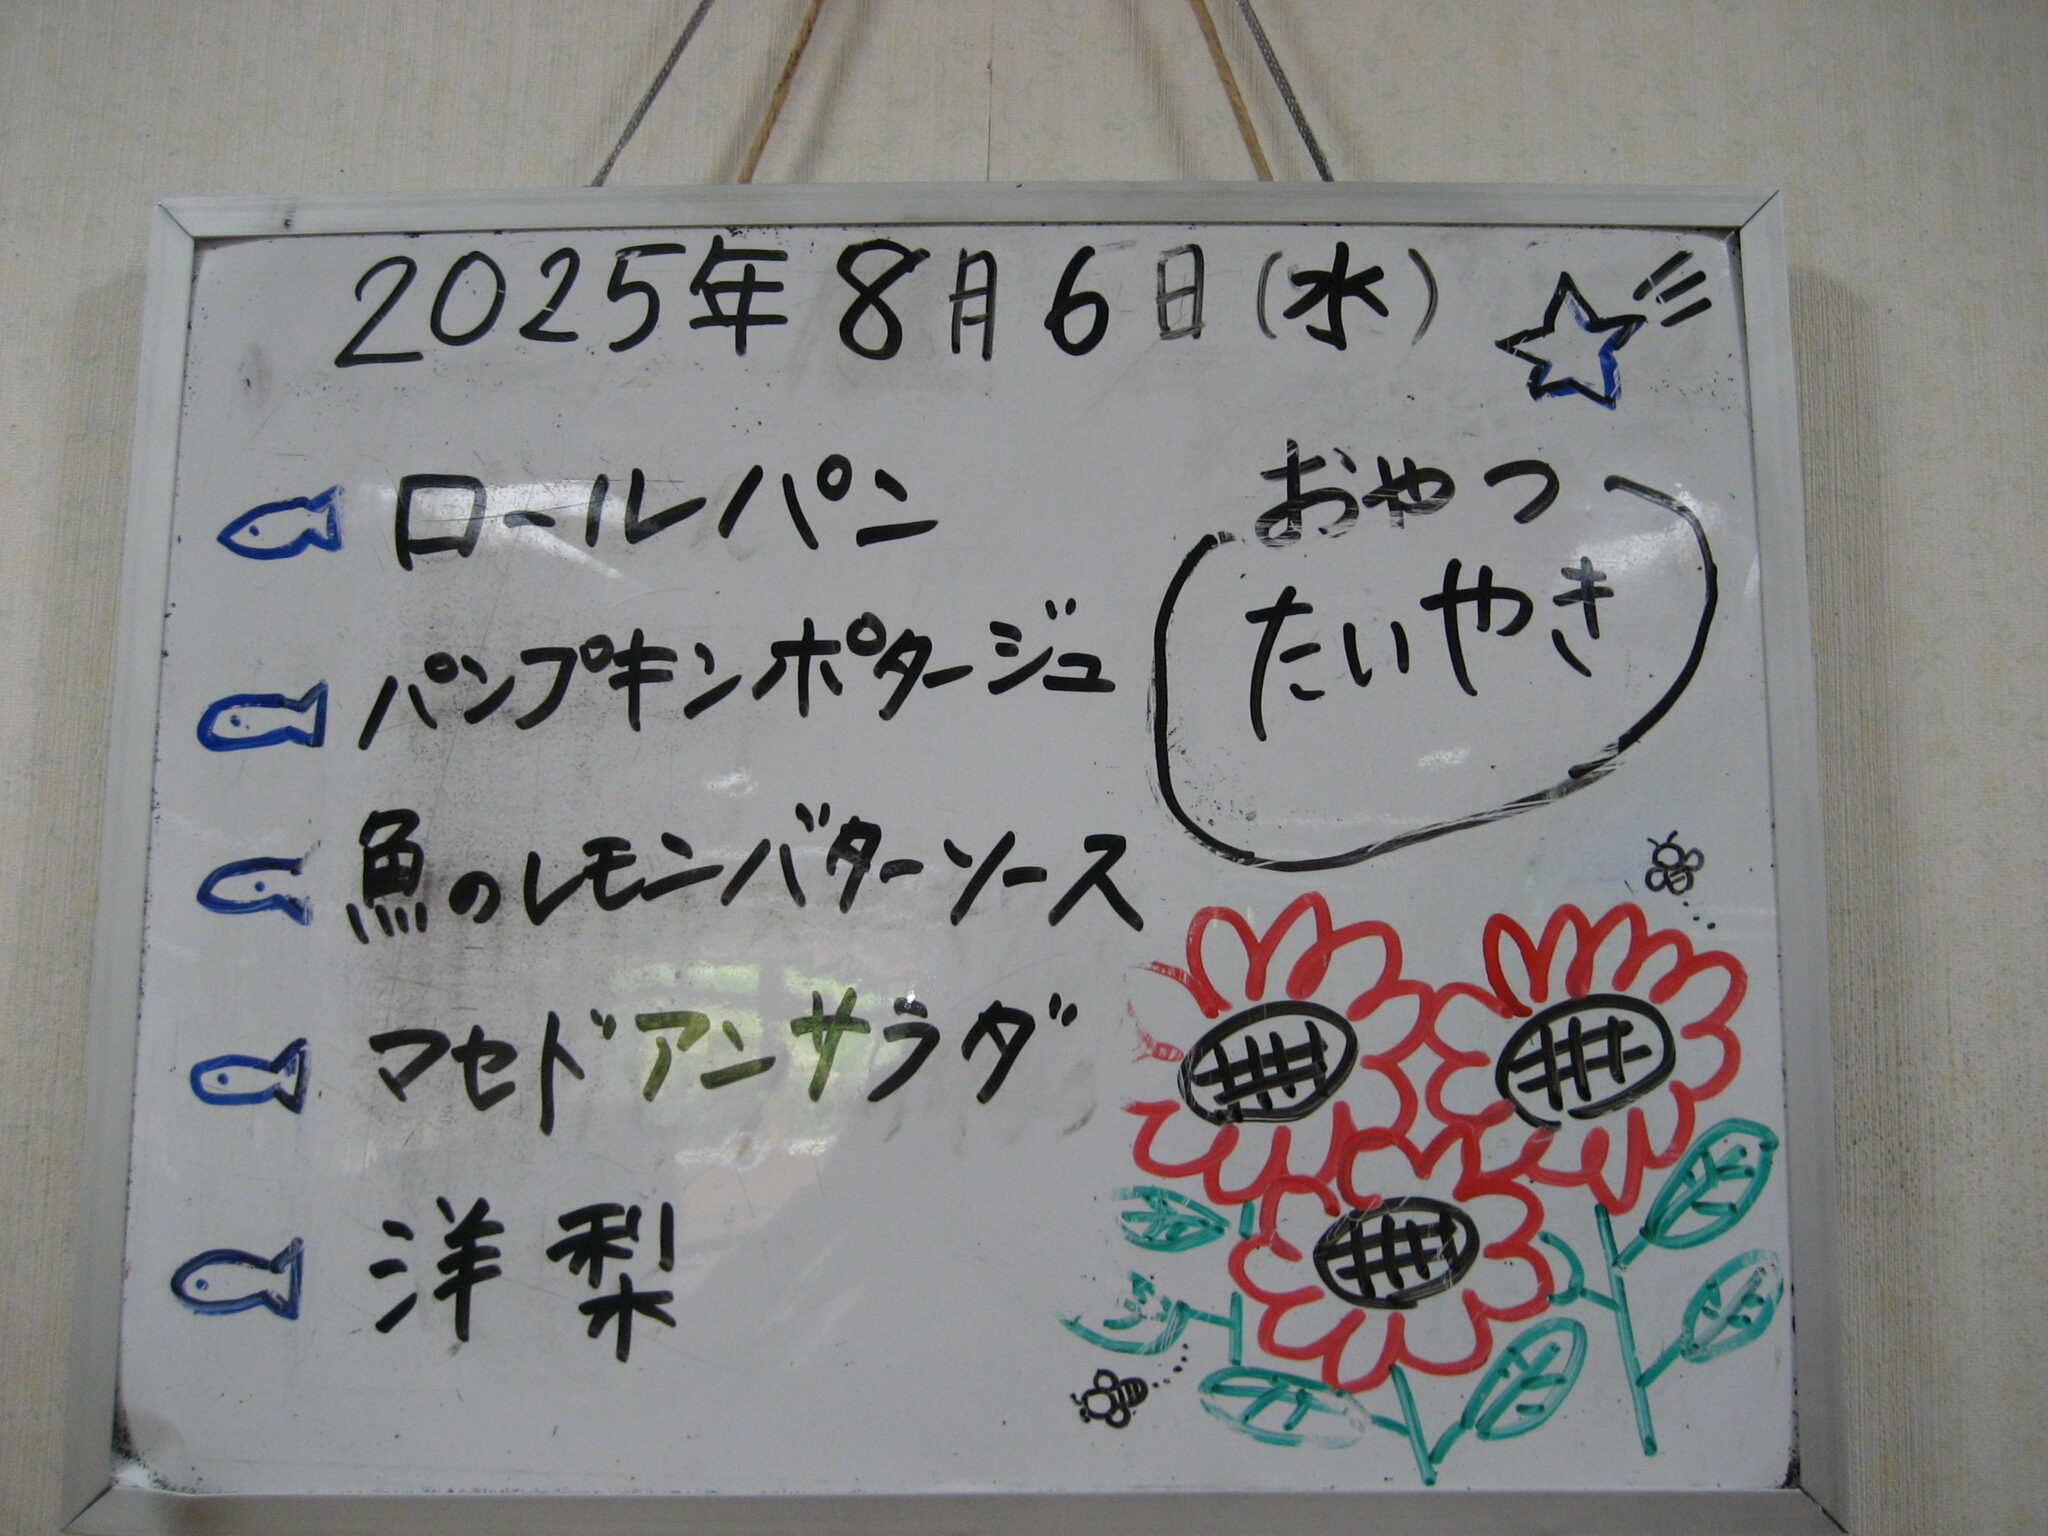 2025年8月6日(水)
ロールパン
パンプキンポタージュ
魚のレモンバターソース
マセドアンサラダ
洋梨
おやつ
たいやき